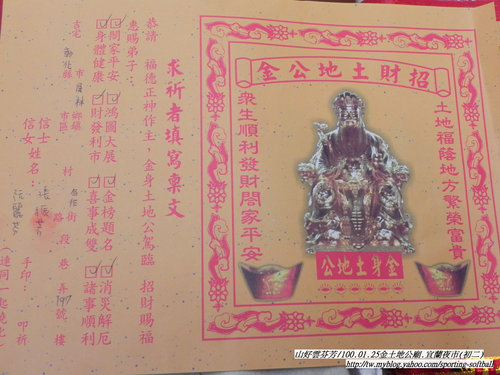 招財土地公金
土地福蔭地方繁榮富貴
眾生順利發財閤家平安
金身土地公
求祈者填寫稟文
恭請 福德正神作主,金身土地公駕臨 招財賜福
惠賜弟子:
闔家平安 鴻圖大展 金榜題名 消災解厄
身體健康 財發利市 喜事成雙 諸事順利
吉宅 縣市 鄉鎮市區 村 街路 段 巷 弄 197 號 樓
信士
信女
姓名:
手印: 叩祈
山好雲芬芳/100.01.25金土地公廟.宜蘭夜市(初二)
http://tw.myblog.yahoo.com/sporting-softball